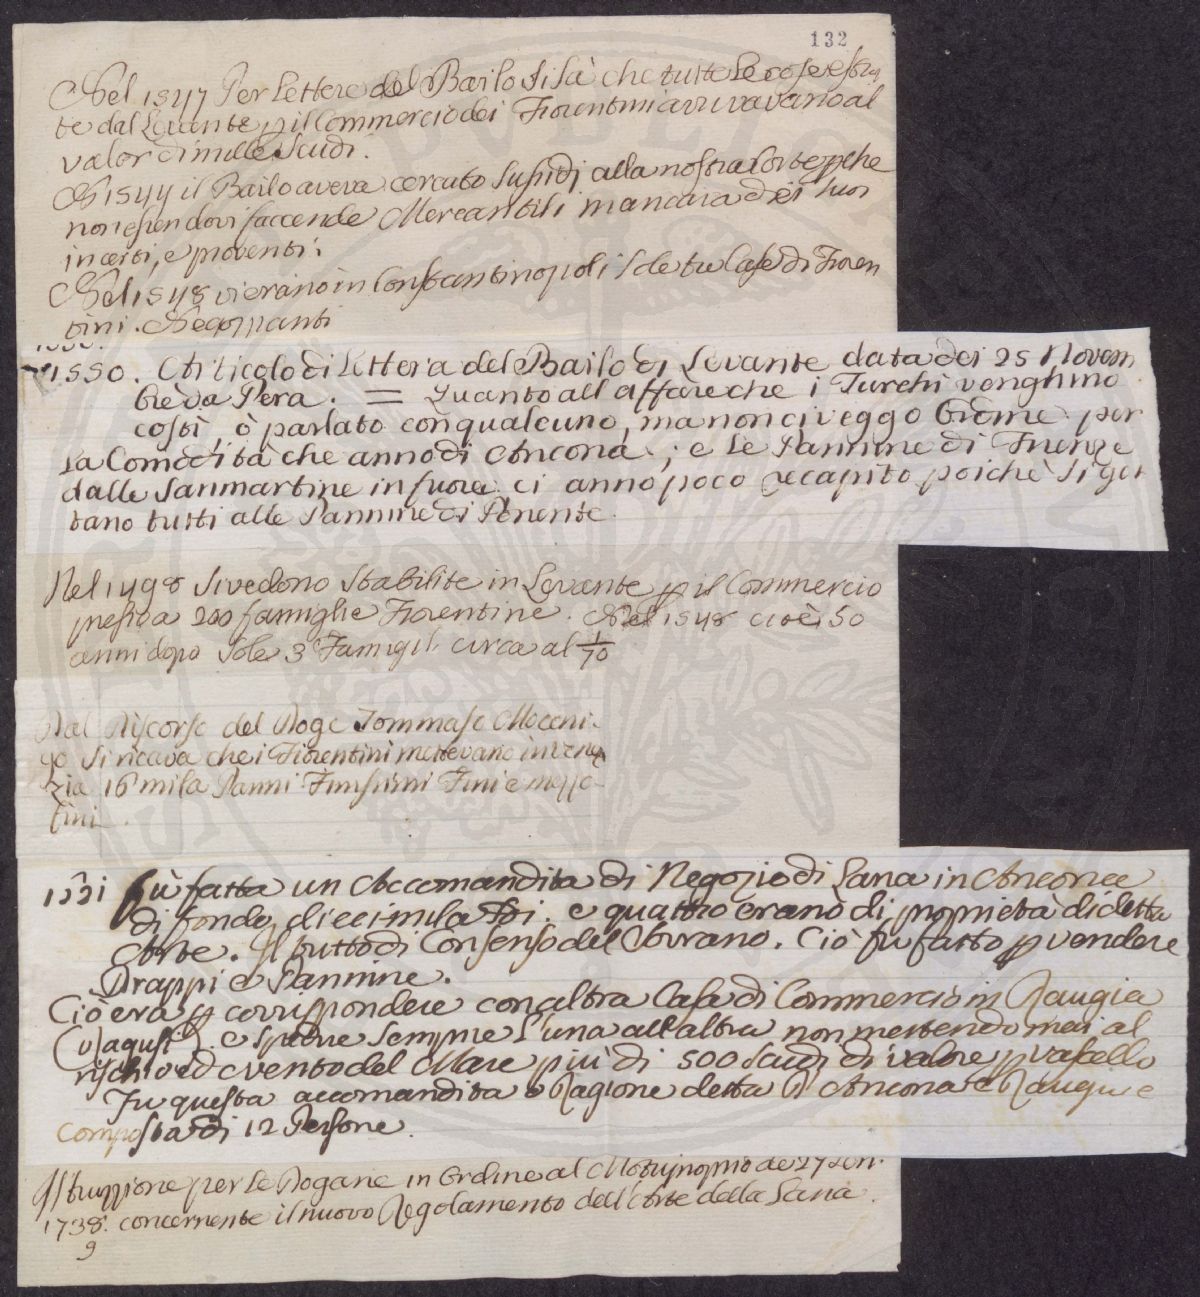 132
Nel 1547 Per Lettere del Bailo si sà che tutte le cose estrat
te dal Levante p il Commercio dei Fiorentini arrivavano al
valor di mille Scudi.
Nel 1544 il Bailo aveva cercato susidj alla nostra Corte pche
non essendovi faccende Mercantili mancava dei suoi
incerti, e proventi.
Nel 1548 vi erano in Constantinopoli sole tre Case di Fioren
tini Negozzianti
1550. Articolo di Lettera del Bailo di Levante data dei 25 Novem
bre da Pera. = Quanto all affare che i Turchi venghino
costì, ò parlato con qualcuno, ma non ci veggo Ordine per
La Comodità che anno di Ancona; e Le Pannine di Firenze
dalle Sanmartine in fuora ci anno poco recapito poichè si get
tano tutti alle Pannine di Ponente
Nel 1498 si vedono stabilite in Levante p il Commercio
presso a 200 famiglie Fiorentine. Nel 1548 cioè 50
anni dopo sole 3 Famigli circa al 1/70
Dal Discorso del Doge Tommaso Moceni
go si ricava che i Fiorentini mettevano in Vene
zia 16 mila Panni Finissimi Fini e mezzo
fini
1551 fù fatta un Accomandita di Negozio di Lana in Ancona
di fondo dieci mila e quattro erano di proprietà di detta
Arte. Il tutto di Consenso del Sovrano. Ciò fu fatto p vendere
Drappi e Pannine.
Ciò era p corrispondere con altra Casa di Commercio in Raugia
e sempre l'una all altra non mettendo mai al
rischio ed evento del Mare più di 500 Scudi di valore p vascello
Fu questa accomandita o Ragione detta d Ancona e Raugia e
composta di 12 Persone.
Istruzzione per Le Dogane in Ordine al Motuproprio de 27
1738. concernente il nuovo Regolamento dell'Arte della Lana.
9